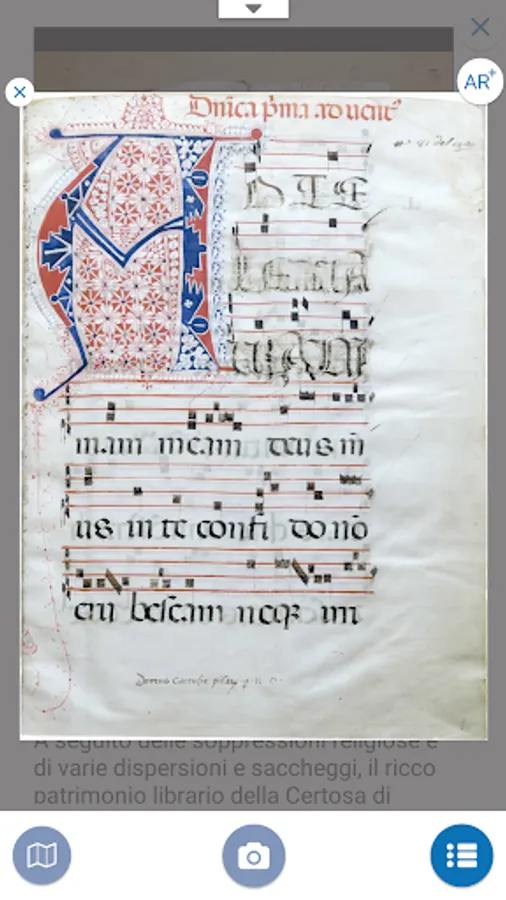 AR+
Dnica pma aduent
A D TE
LEVAVI
ANI
mam meam deus m̄
us in te confi do nō
eru bescam neqꝫ irri
Domus Cartusie
A seguito delle soppressioni religiose e
di varie dispersioni e saccheggi, il ricco
patrimonio librario della Certosa di